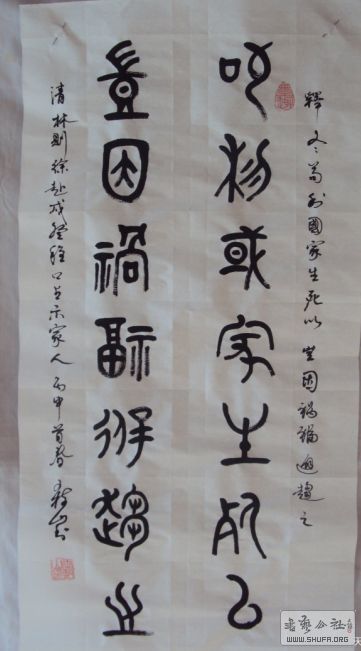 釋文苟利國家生死以 豈因禍福避趨之
苟利或家生死以
豈因禍福避趨之
清林則徐赴戍登程口占示家人 丙申首春
WWW.SHUFA.ORG